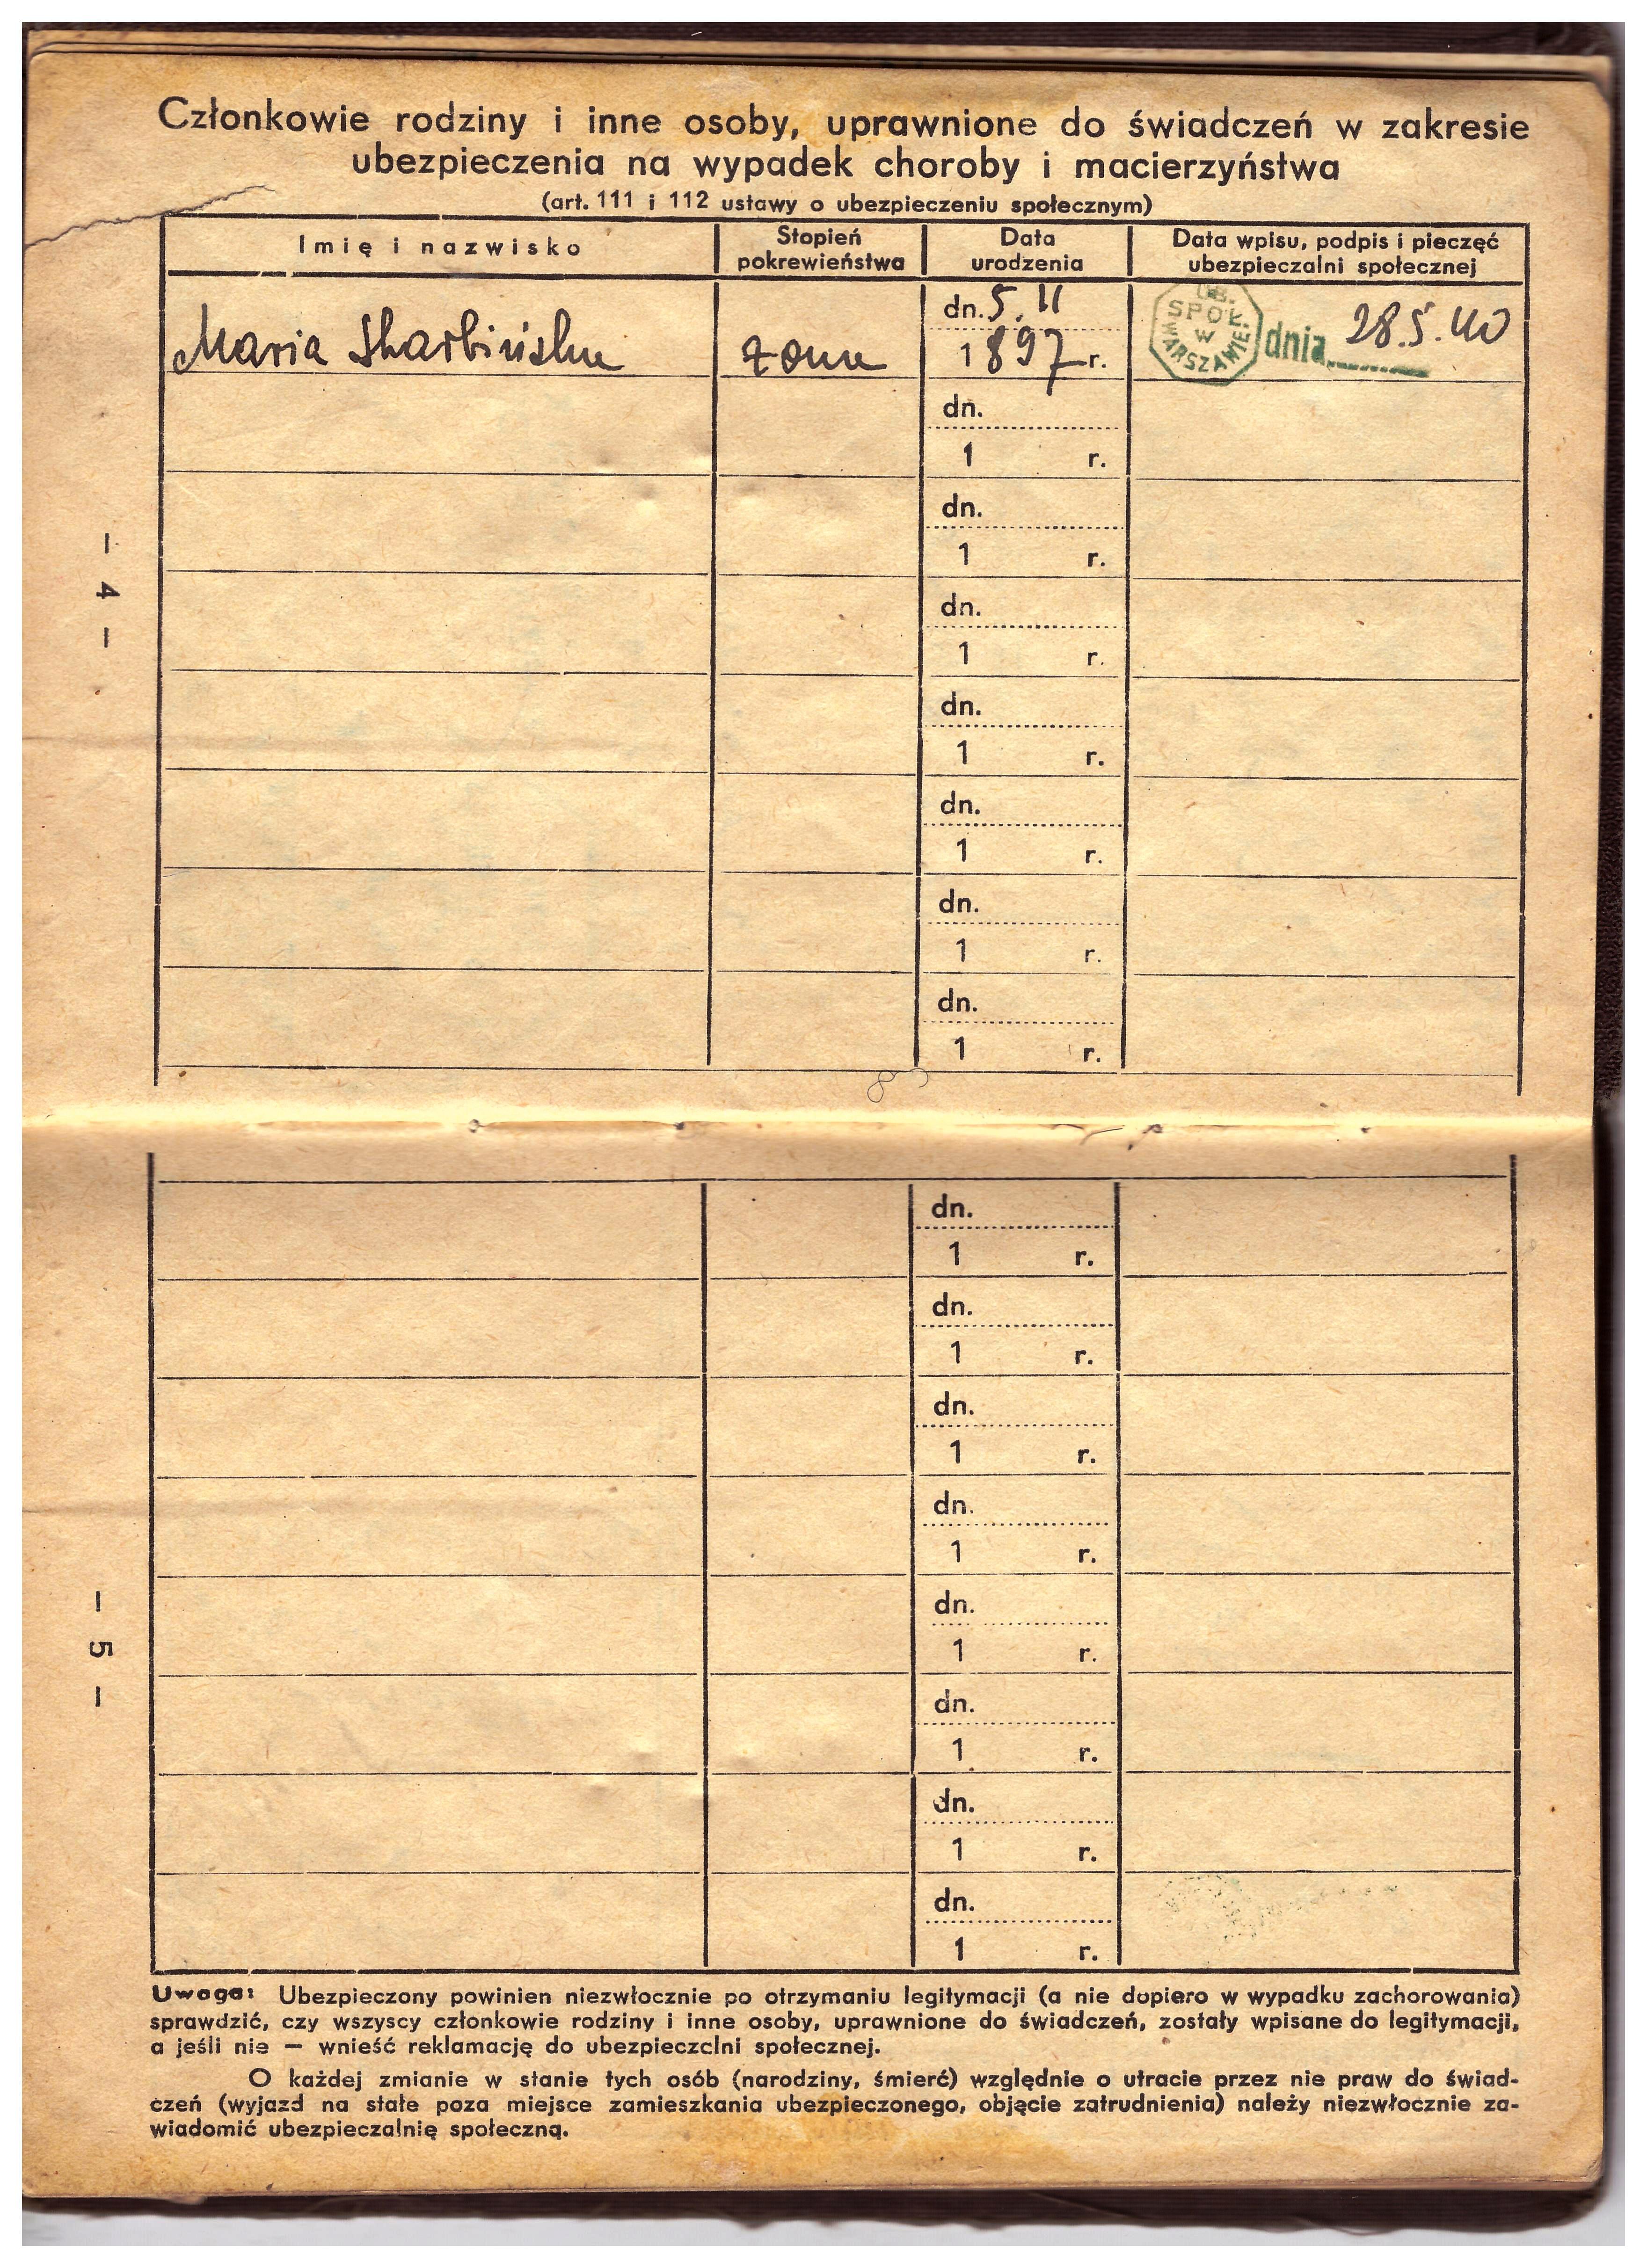 Członkowie rodziny i inne osoby, uprawnione do świadczeń w zakresie
ubezpieczenia na wypadek choroby i macierzyństwa
(art. 111 i 112 ustawy o ubezpieczeniu społecznym)
Imię i nazwisko Stopień pokrewieństwa Data urodzenia Data wpisu, podpis i pieczęć ubezpieczalni społecznej
Maria Skarbińska żona dn. 5. II 1897 r. UB. SPOŁ. W WARSZAWIE dnia 28.5.40
dn.
1 r.
dn.
1 r.
dn.
1 r.
dn.
1 r.
dn.
1 r.
dn.
1 r.
dn.
1 r.
– 4 –
dn.
1 r.
dn.
1 r.
dn.
1 r.
dn.
1 r.
dn.
1 r.
dn.
1 r.
dn.
1 r.
dn.
1 r.
– 5 –
Uwaga: Ubezpieczony powinien niezwłocznie po otrzymaniu legitymacji (a nie dopiero w wypadku zachorowania)
sprawdzić, czy wszyscy członkowie rodziny i inne osoby, uprawnione do świadczeń, zostały wpisane do legitymacji,
a jeśli nie — wnieść reklamację do ubezpieczalni społecznej.
O każdej zmianie w stanie tych osób (narodziny, śmierć) względnie o utracie przez nie praw do świad-
czeń (wyjazd na stałe poza miejsce zamieszkania ubezpieczonego, objęcie zatrudnienia) należy niezwłocznie za-
wiadomić ubezpieczalnię społeczną.